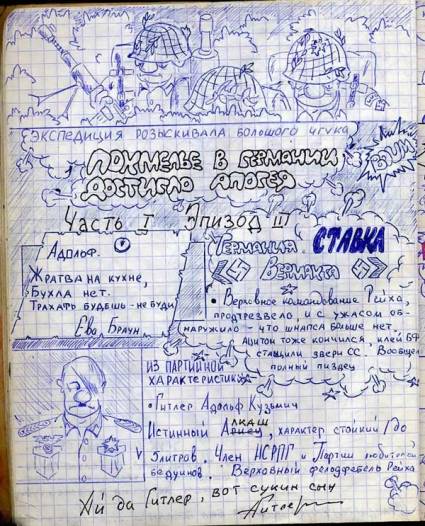 ЭКСПЕДИЦИЯ РОЗЫСКИВАЛА БОЛЬШОГО ЧГУКА
ПОХМЕЛЬЕ В ГЕРМАНИИ
ДОСТИГЛО АПОГЕЯ
BUM
Часть I Эпизод III
Адольф.
Жратва на кухне,
Бухла нет.
Трахать будешь - не буди
Ева Браун
Германия СТАВКА
Вермахта
• Верховное командование Рейха,
протрезвело, и с ужасом об-
наружило - что шнапса больше нет.
Ацитон тоже кончился, клей БФ
стащили звери СС. Вообщем
полный пиздец
ИЗ ПАРТИЙНОЙ
ХАРАКТЕРИСТИКИ
• Гитлер Адольф Кузьмич
ЛКАШ
Истинный Ариец, характер стойкий (до
3 литров. Член НСРПГ и Партии любителей
бедуинов. Верховный
Рейха
Ай да Гитлер, вот сукин сын
Гитлер